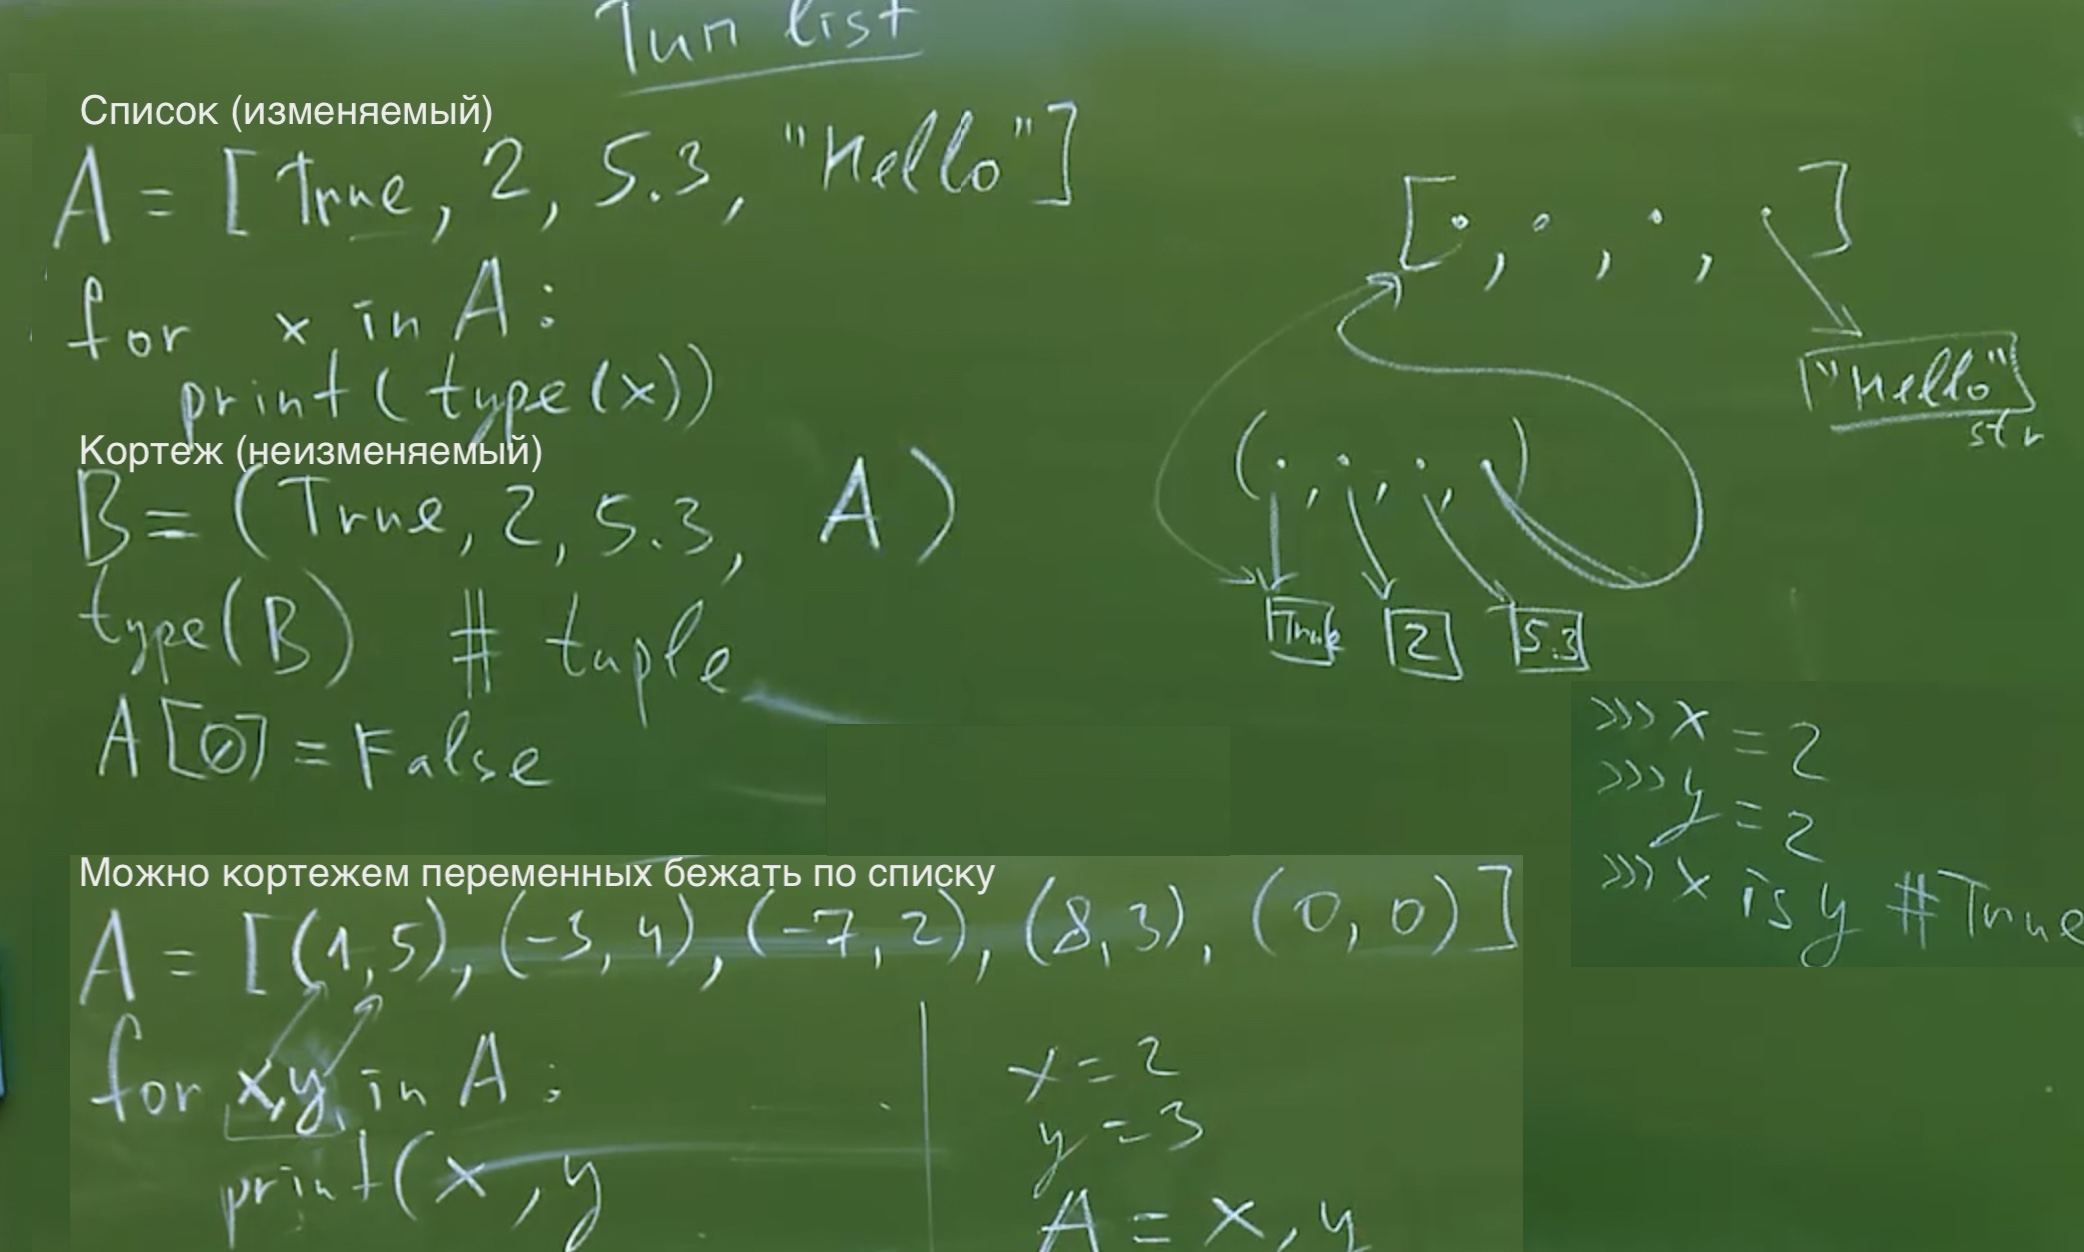 Тип list
Список (изменяемый)
A = [True, 2, 5.3, "Hello"]
for x in A:
print(type(x))
Кортеж (неизменяемый)
B = (True, 2, 5.3, A)
type(B) # tuple
A[0] = False
[., ., ., .]
"Hello"
str
(., ., ., .)
True 2 5.3
>>> x = 2
>>> y = 2
>>> x is y # True
Можно кортежем переменных бежать по списку
A = [(1,5), (-3, 4), (-7, 2), (8, 3), (0, 0)]
for x,y in A:
print(x, y
x = 2
y = 3
A = x, y